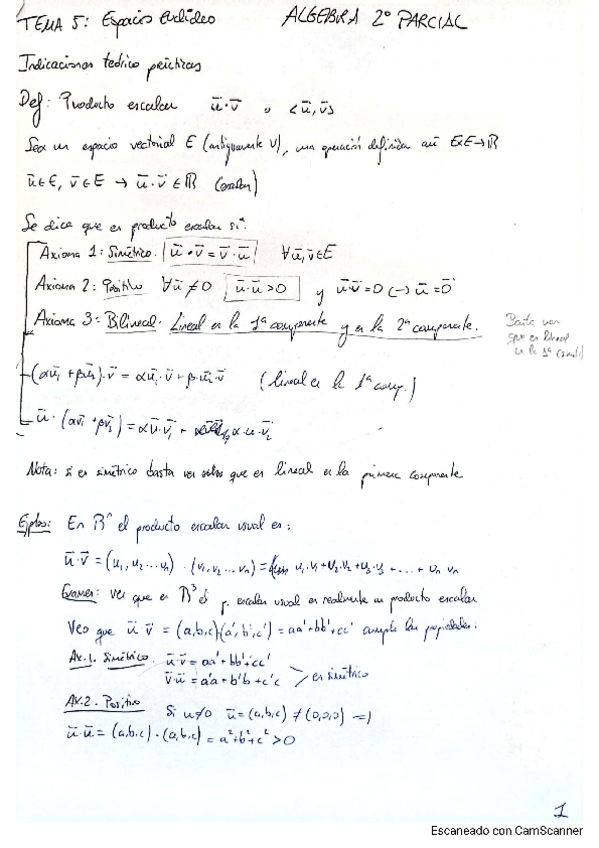 TEMA 5: Espacio Euclídeo ALGEBRA 2º PARCIAL
Indicaciones teórico prácticas
Def: Producto escalar ū·v̄ o <ū,v̄>
Sea un espacio vectorial E (antiguamente V), una operación definida así ExE→ℝ
ū∈E, v̄∈E → ū·v̄ ∈ ℝ (escalar)
Se dice que es producto escalar si:
Axioma 1: Simétrico. ū·v̄ = v̄·ū ∀ū,v̄∈E
Axioma 2: Positivo ∀ū≠0 ū·ū>0 y ū·ū=0 ↔ ū=0̄
Axioma 3: Bilineal. Lineal en la 1ª componente y en la 2ª componente.
Basta ver
que es lineal
en la 1ª
(αū₁+βū₂)·v̄ = αū₁·v̄ + β·ū₂·v̄ (lineal en la 1ª comp.)
ū·(αv̄₁+βv̄₂) = αū·v̄₁ +
Nota: si es simétrico basta ver que es lineal en la primera componente
Ejplos: En ℝⁿ el producto escalar usual es:
ū·v̄ = (u₁,u₂...uₙ)·(v₁,v₂...vₙ) = u₁·v₁+u₂·v₂+u₃·v₃+....+uₙvₙ
Examen: ver que en ℝ³ el p. escalar usual es realmente un producto escalar
Veo que ū·v̄ = (a,b,c)(a',b',c') = aa'+bb'+cc' cumple las propiedades:
Ax.1. Simétrico. ū·v̄ = aa'+bb'+cc'
v̄·ū = a'a+b'b+c'c > es simétrico
Ax.2. Positivo Si u≠0 ū=(a,b,c)≠(0,0,0) ⇒
ū·ū = (a,b,c)·(a,b,c) = a²+b²+c²>0
1
Escaneado con CamScanner